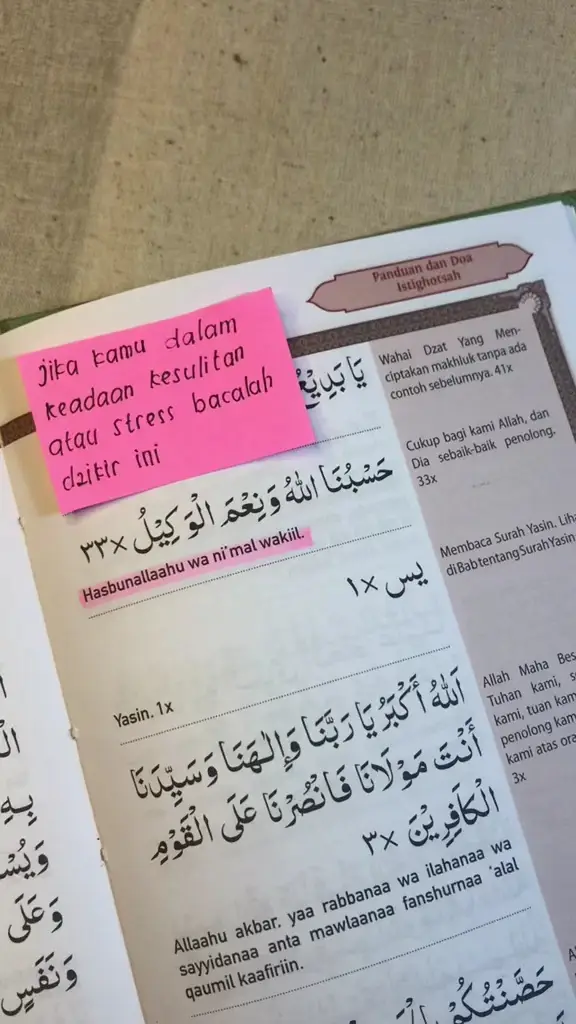 Panduan dan Doa
Istighotsah
jika kamu dalam
keadaan kesulitan
atau stress bacalah
dzikir ini
يَا بَدِيْعُ
Wahai Dzat Yang Men-
ciptakan makhluk tanpa ada
contoh sebelumnya. 41x
حَسْبُنَا اللهُ وَنِعْمَ الْوَكِيْلُ ×٣٣
Hasbunallaahu wa ni'mal wakiil.
Cukup bagi kami Allah, dan
Dia sebaik-baik penolong.
33x
يس ×١
Yasin. 1x
Membaca Surah Yasin. Liha
di Bab tentang Surah Yasin
اَللهُ أَكْبَرُ يَا رَبَّنَا وَإِلٰهَنَا وَسَيِّدَنَا
أَنْتَ مَوْلَانَا فَانْصُرْنَا عَلَى الْقَوْمِ
الْكَافِرِيْنَ ×٣
Allaahu akbar, yaa rabbanaa wa ilahanaa wa
sayyidanaa anta mawlaanaa fanshurnaa 'alal
qaumil kaafiriin.
Allah Maha Bes
Tuhan kami, s
kami, tuan kam
penolong kam
kami atas ora
3x
حَصَّنْتُكُمْ
بِهِ
وَيُسْ
وَعَلَى
وَنَفَسٍ